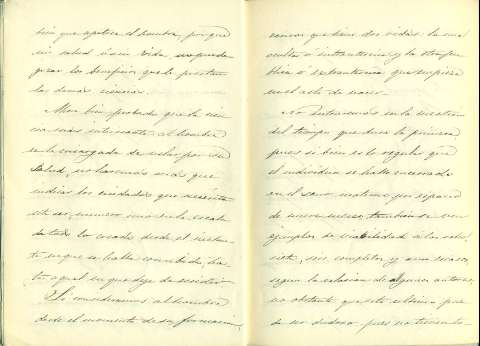 bien que apetece el hombre, porque
sin salud ó sin vida, no puede
gozar los beneficios que le prestan
las demas ciencias.
Ahora bien probado que la cien
cia más interesante al hombre
es la encargada de velar por su
salud, no haremos más que
indicar los cuidados que necesita
este ser, numero uno en la escala
de todo lo creado, desde el instan-
te en que se halla concebido has-
ta aquel en que deja de existir.
Si consideramos al hombre
desde el momento de su formacion,
vemos que tiene dos vidas: la una
oculta ó intrauterina y la otra pu-
blica ó extrauterina que empieza
en el acto de nacer.
No entraremos en la cuestion
del tiempo que dura la primera
pues si bien es lo regular que
el individuo se halle encerrado
en el claustro materno por espacio
de nueve meses, tambien se ven
ejemplos de viabilidad á los
siete, seis completos y aun cinco,
segun la relacion de algunos autores,
no obstante que esto ultimo pue
de ser dudoso pues no tenemos